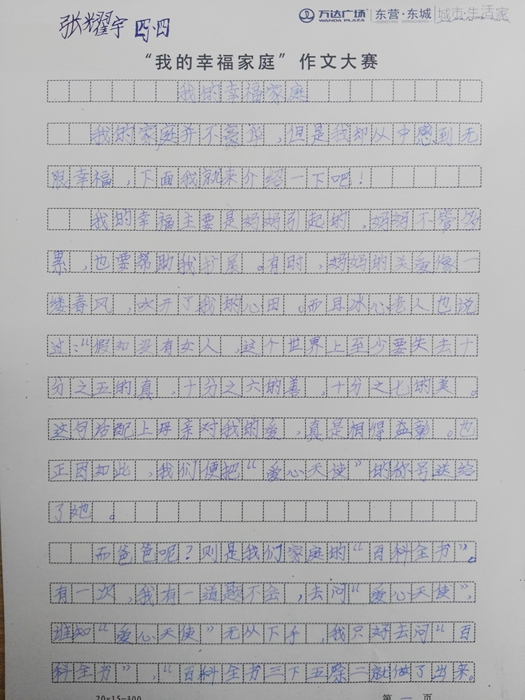 张耀宇 四.四
万达广场 WANDA PLAZA 东营·东城 城市·生活家
“我的幸福家庭”作文大赛
我的幸福家庭
我的家庭并不豪华，但是我却从中感到无
限幸福，下面我就来介绍一下吧！
我的幸福主要是妈妈引起的，妈妈不管多
累，也要帮助我扩展。有时，妈妈的关爱像一
缕春风，吹开了我的心田。而且冰心老人也说
过：“假如没有女人，这个世界上至少要失去十
分之五的真，十分之六的善，十分之七的美。
这句话配上母亲对我的爱，真是相得益彰。也
正因如此，我们便把“爱心天使”的称号送给
了她。
而爸爸呢？则是我们家庭的“百科全书”。
有一次，我有一道题不会，去问“爱心天使”，
谁知“爱心天使”无从下手，我只好去问“百
科全书”，“百科全书三下五除二就做了出来。
20×15=300
第一页